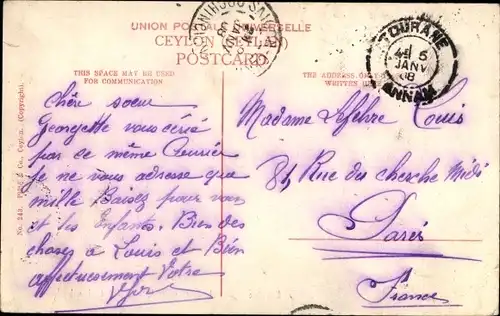 UNION POSTALE UNIVERSELLE
CEYLON (CEYLAN)
POSTCARD
THIS SPACE MAY BE USED
FOR COMMUNICATION
THE ADDRESS ONLY
WRITTEN
TOURANE
5
JANV
08
ANNAM
SAIGON
COCHINCHINE
No. 240. & Co., Ceylon. (Copyright).
Chère soeur
Georgette vous écrit
par ce même Courrier
Je ne vous adresse que
mille Baisez pour vous
et les Enfants. Bien des
choses à Louis et Bien
affectueusement Votre
Madame Lefebvre Louis
81 Rue du cherche Midi
Paris
France